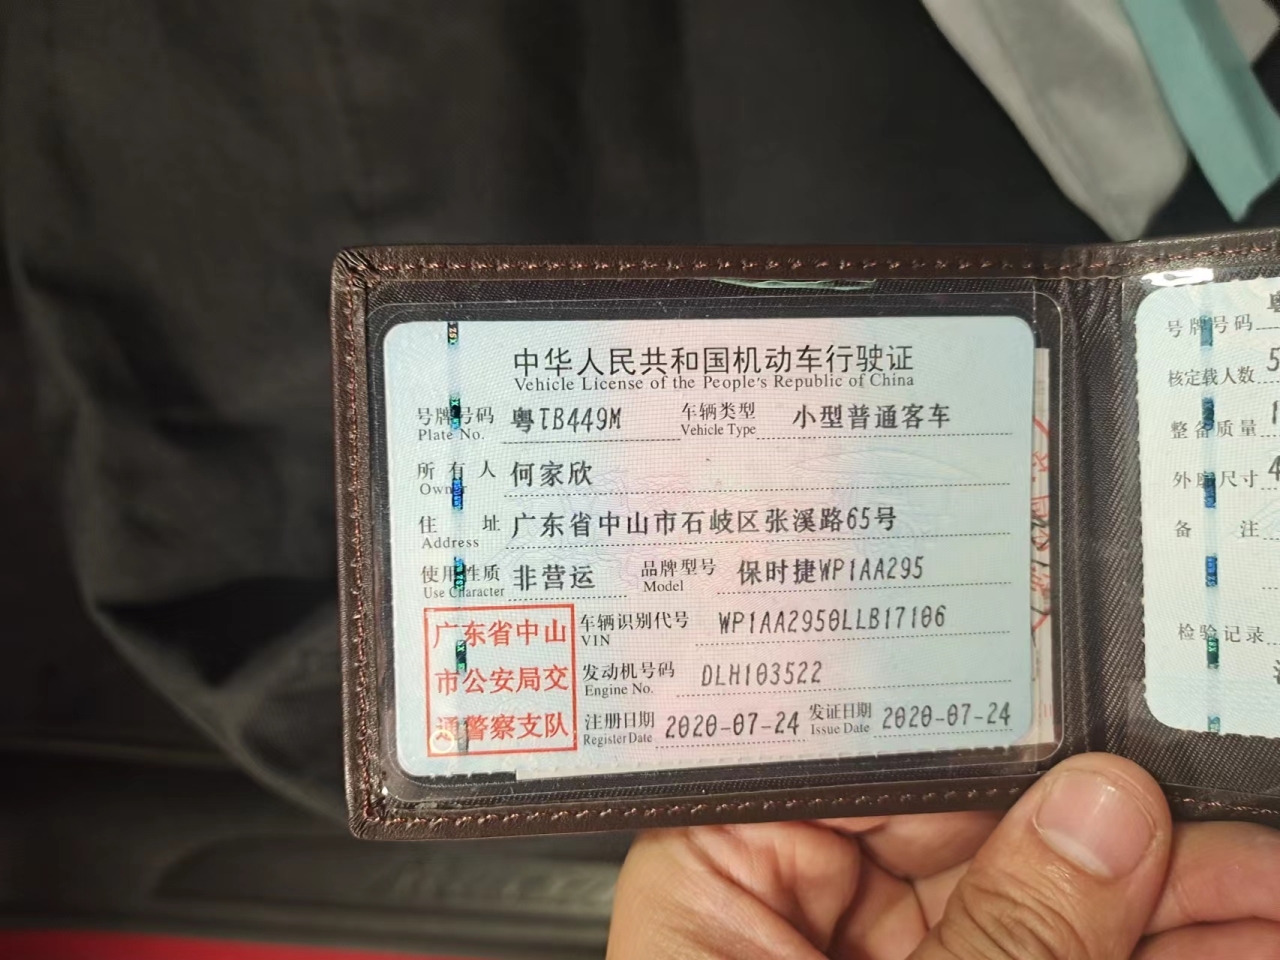 中华人民共和国机动车行驶证
Vehicle License of the People's Republic of China
号牌号码 粤TB449M 车辆类型 小型普通客车
Plate No. Vehicle Type
所有人 何家欣
Owner
住址 广东省中山市石岐区张溪路65号
Address
使用性质 非营运 品牌型号 保时捷WP1AA295
Use Character Model
广东省中山
市公安局交
通警察支队
车辆识别代号 WP1AA2950LLB17106
VIN
发动机号码 DLH103522
Engine No.
注册日期 2020-07-24 发证日期 2020-07-24
Register Date Issue Date
号牌号码
核定载人数 5
整备质量
外廓尺寸 4
备注
检验记录